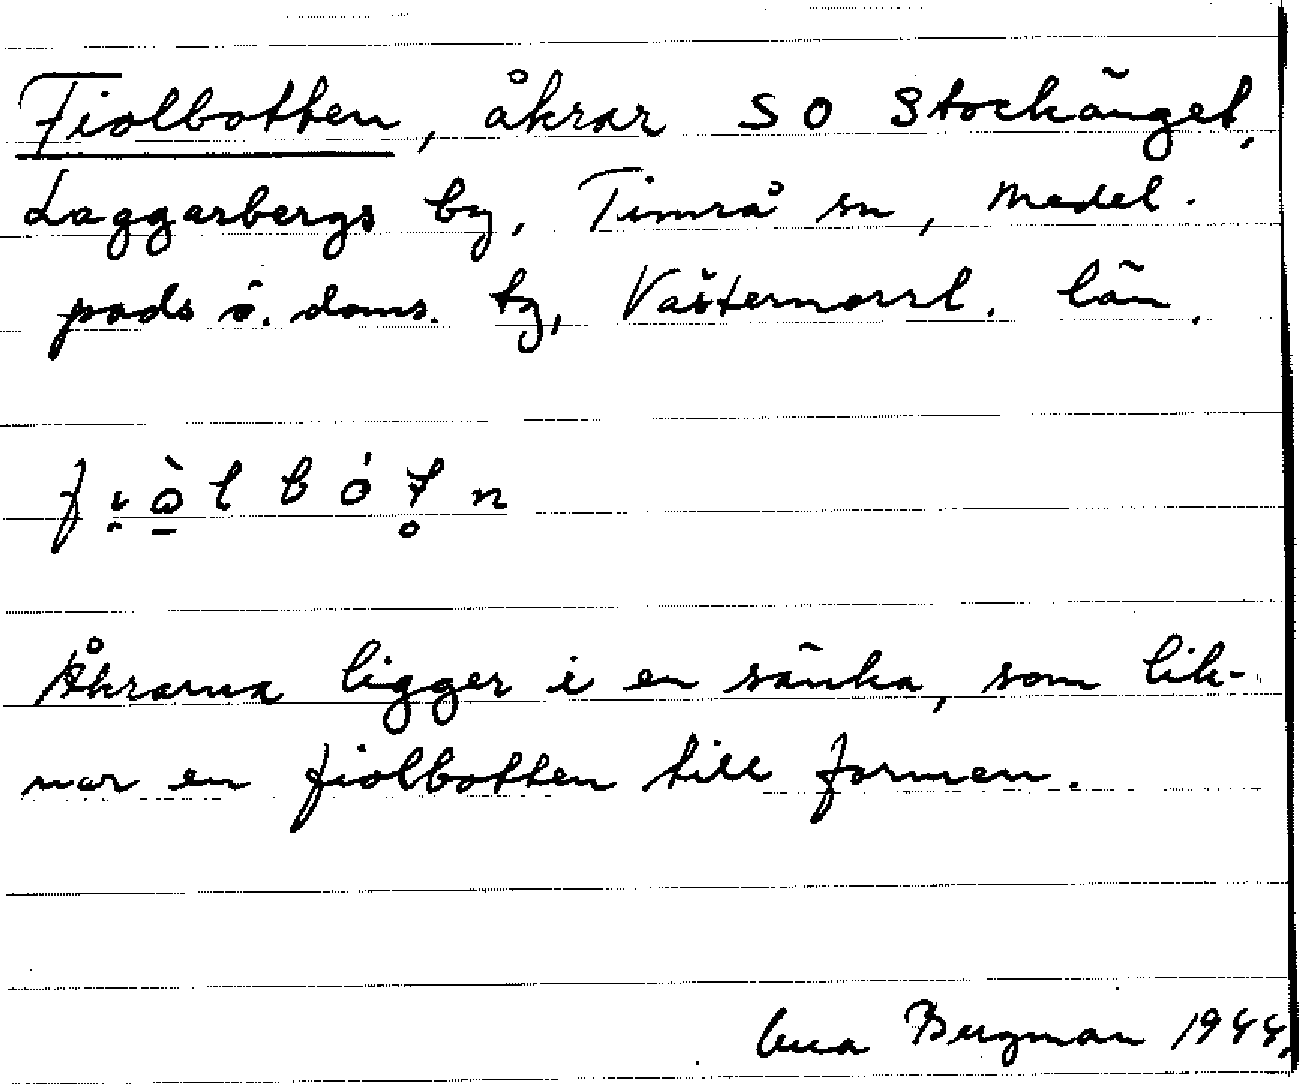 Fiolbotten, åkrar SO Stockänget,
Laggarbergs by, Timrå sn, Medel-
pads ö. doms. tg, Västernorrl. län.
fi̯ò̱lbót̥n
Åkrarna ligger i en sänka, som lik-
nar en fiolbotten till formen.
Bergman 1944.